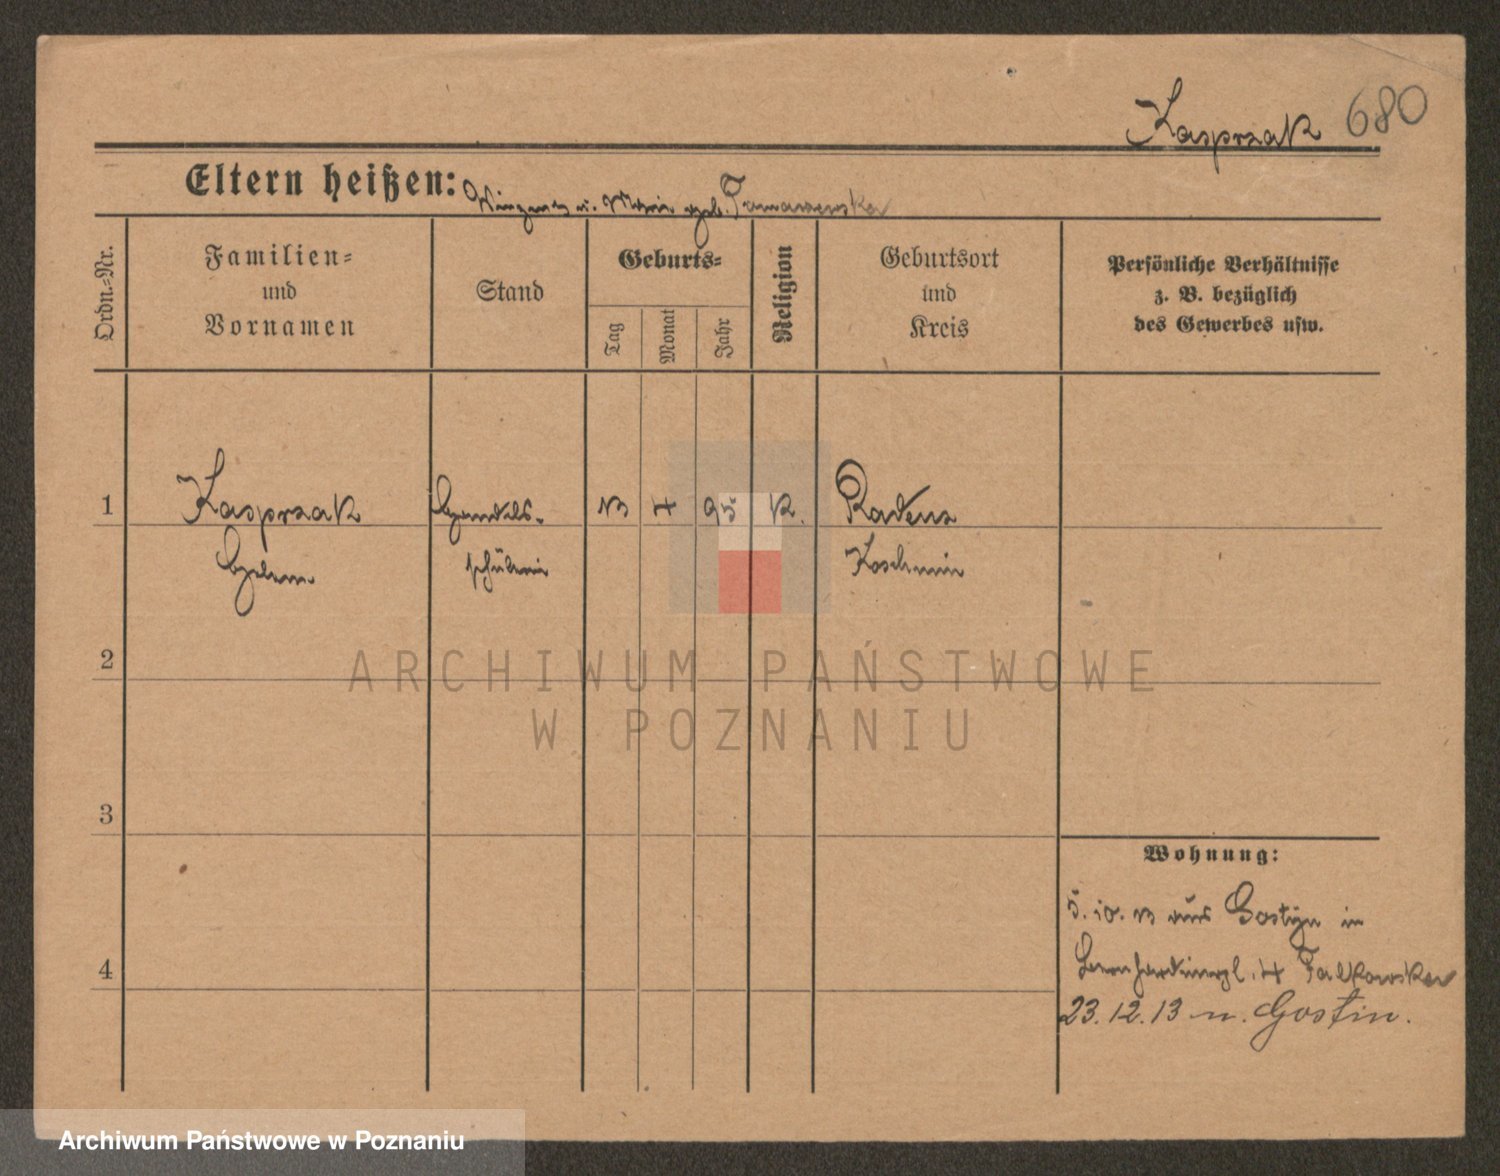 Kasprzak 680
Eltern heißen: Vinzenz u. Marie geb. Tomaszewska
Ordn.=Nr.
Familien=
und
Vornamen
Stand
Geburts=
Tag
Monat
Jahr
Religion
Geburtsort
und
Kreis
Persönliche Verhältnisse
z. B. bezüglich
des Gewerbes usw.
1 Kasprzak Handels- 13 4 95 K. Radenz
Helene schülerin Koschmin
2
3
4
Wohnung:
5.10.13 aus Gostyn in
Bernhardinerpl. 4 Falkowska
23.12.13 n. Gostin.
ARCHIWUM PAŃSTWOWE
W POZNANIU
Archiwum Państwowe w Poznaniu